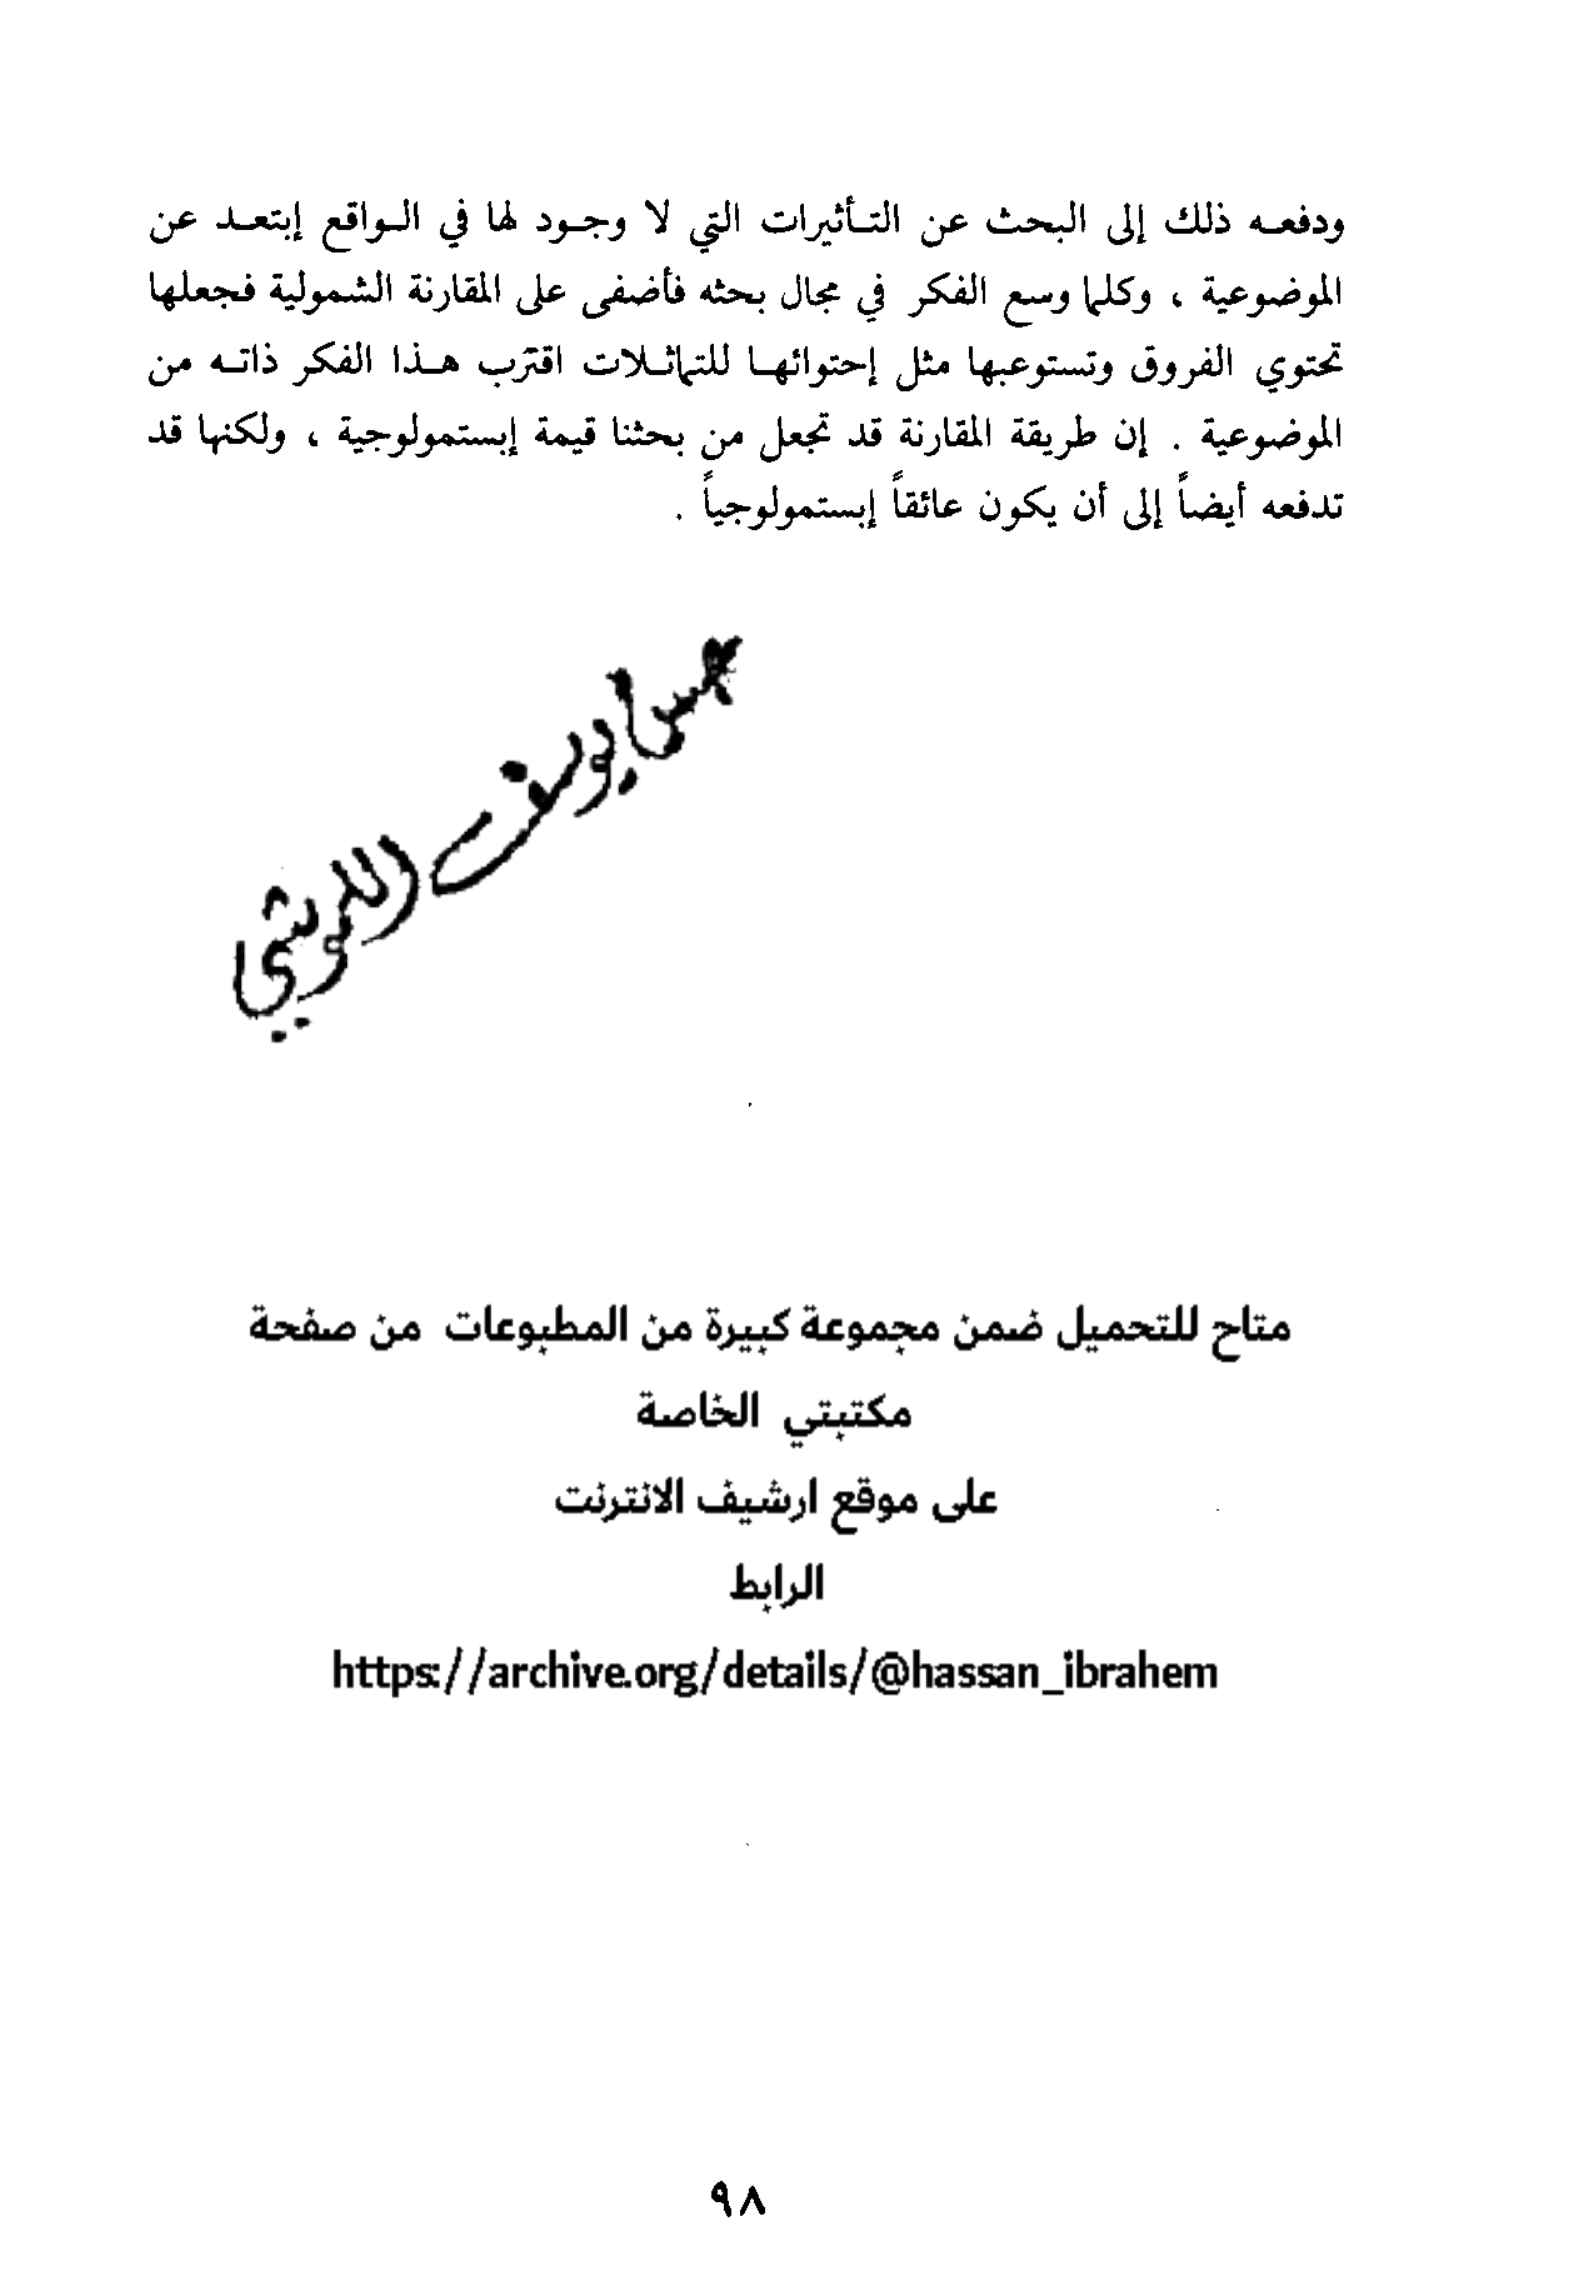 ودفعه ذلك إلى البحث عن التأثيرات التي لا وجود لها في الواقع إبتعد عن
الموضوعية ، وكلما وسع الفكر في مجال بحثه فأضفى على المقارنة الشمولية فجعلها
تحتوي الفروق وتستوعبها مثل إحتوائها للتماثلات اقترب هذا الفكر ذاته من
الموضوعية . إن طريقة المقارنة قد تجعل من بحثنا قيمة إبستمولوجية ، ولكنها قد
تدفعه أيضاً إلى أن يكون عائقاً إبستمولوجياً .
يوسف
متاح للتحميل ضمن مجموعة كبيرة من المطبوعات من صفحة
مكتبتي الخاصة
على موقع ارشيف الانترنت
الرابط
https://archive.org/details/@hassan_ibrahem
٩٨